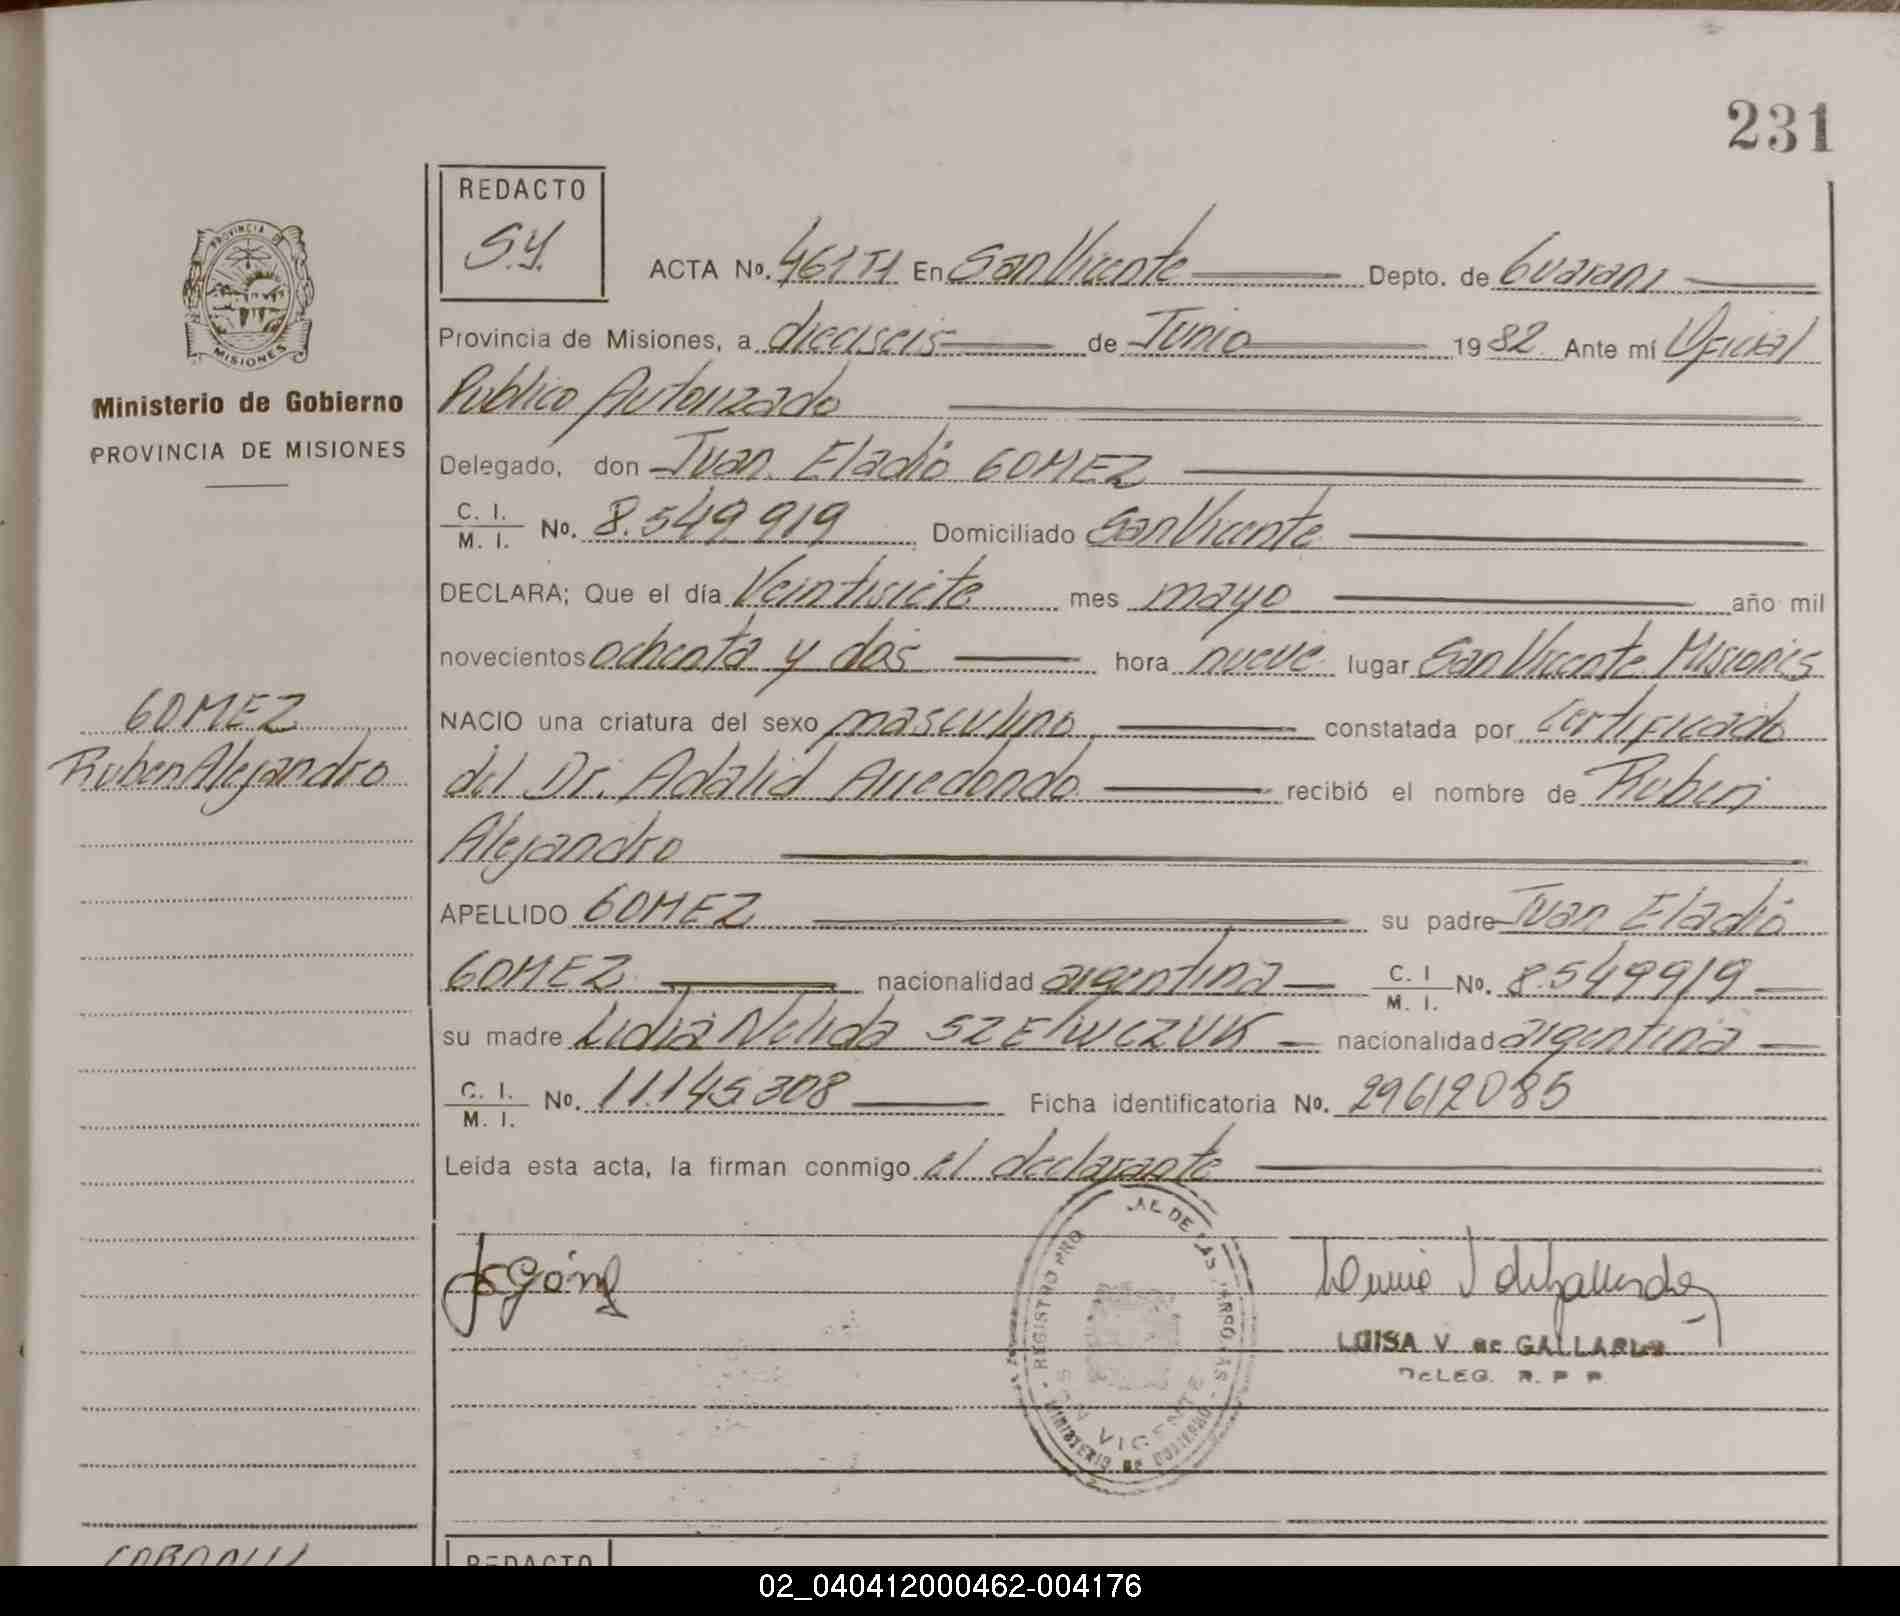 231
REDACTO
S.Y.
PROVINCIA DE
MISIONES
Ministerio de Gobierno
PROVINCIA DE MISIONES
GOMEZ
Ruben Alejandro
ACTA No. 461 T1 En San Vicente Depto. de Guarani
Provincia de Misiones, a dieciseis de Junio 1982 Ante mí Oficial
Publico Autorizado
Delegado, don Juan Eladio GOMEZ
C. I. / M. I. No. 8.549.919 Domiciliado San Vicente
DECLARA; Que el día Veintisiete mes mayo año mil
novecientos ochenta y dos hora nueve lugar San Vicente Misiones
NACIO una criatura del sexo masculino constatada por Certificado
del Dr. Adalid Arredondo recibió el nombre de Ruben
Alejandro
APELLIDO GOMEZ su padre Juan Eladio
GOMEZ nacionalidad argentina C. I / M. I. No. 8.549919
su madre Lidia Nelida SZEIWCZUK nacionalidad argentina
C. I. / M. I. No. 11.145.308 Ficha identificatoria No. 29612085
Leída esta acta, la firman conmigo el declarante
REGISTRO PRO AL DE LAS PERSONAS
SAN VICENTE
MINISTERIO de GOBIERNO
LUISA V. de GALLARDO
DELEG. R. P. P.
REDACTO
02_040412000462-004176